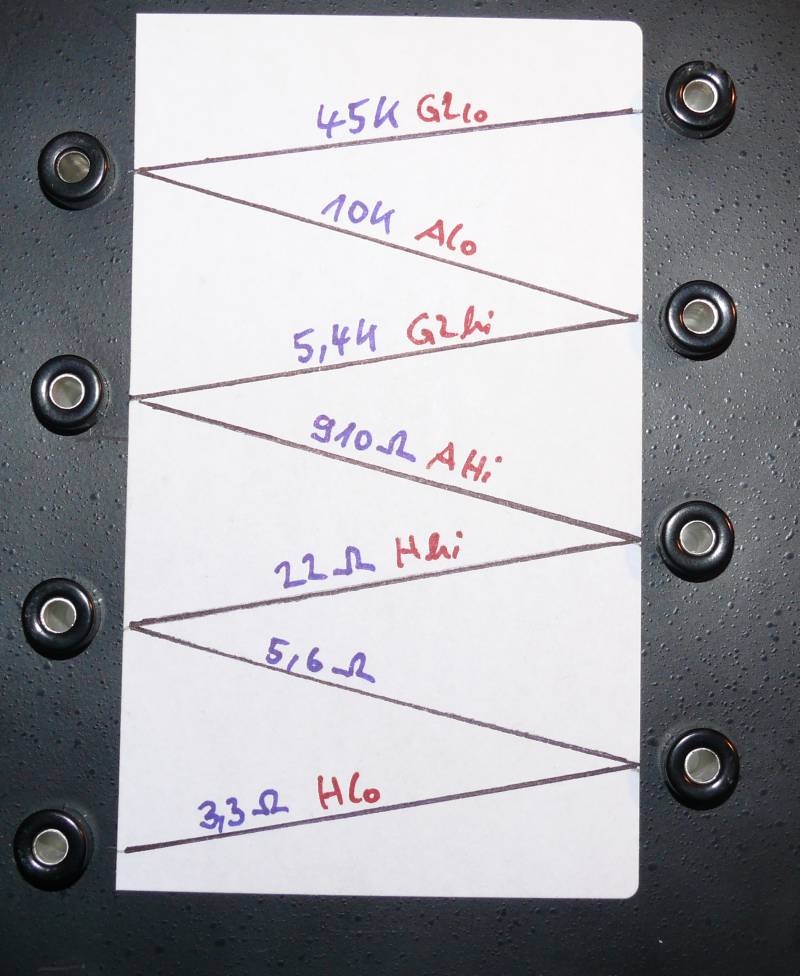 45K G2lo
10K Alo
5,4K G2hi
910Ω AHi
22Ω Hhi
5,6Ω
3,3Ω Hlo